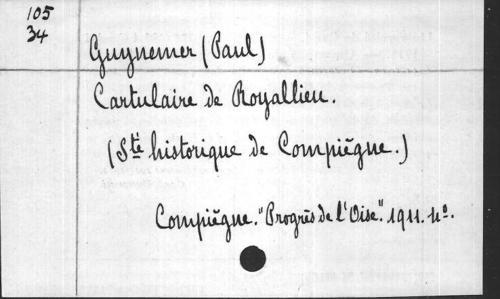 105
34
Guynemer (Paul)
Cartulaire de Royallieu.
(Sté historique de Compiègne.)
Compiègne. "Progrès de l'Oise". 1911. 4o.